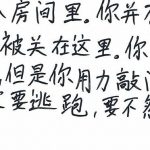 房间里。你并
被关在这里。你
但是你用力敲
要逃跑,要不